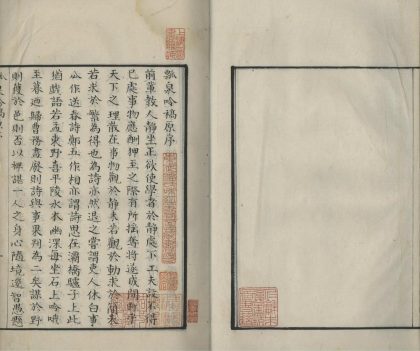 瓢泉吟稿原序
前輩教人靜坐正欲使學者於靜處下工夫設不得
已處事物應酬狎至之際有所搖奪將遂成間斷乎
天下之理散在事物觀於靜未若觀於動求於簡未
若求於繁為得也為詩亦然退之嘗謂吏人休白事
公作送春詩鄭五作相亦謂詩思在灞橋驢子上此
猶戲語若孟東野喜平陵水木幽深每坐石上吟哦
至暮迺歸曹務盡廢則詩與事果判為二矣謀於野
則獲於邑則否以裨諶一人之身心隨境遷智愚頓